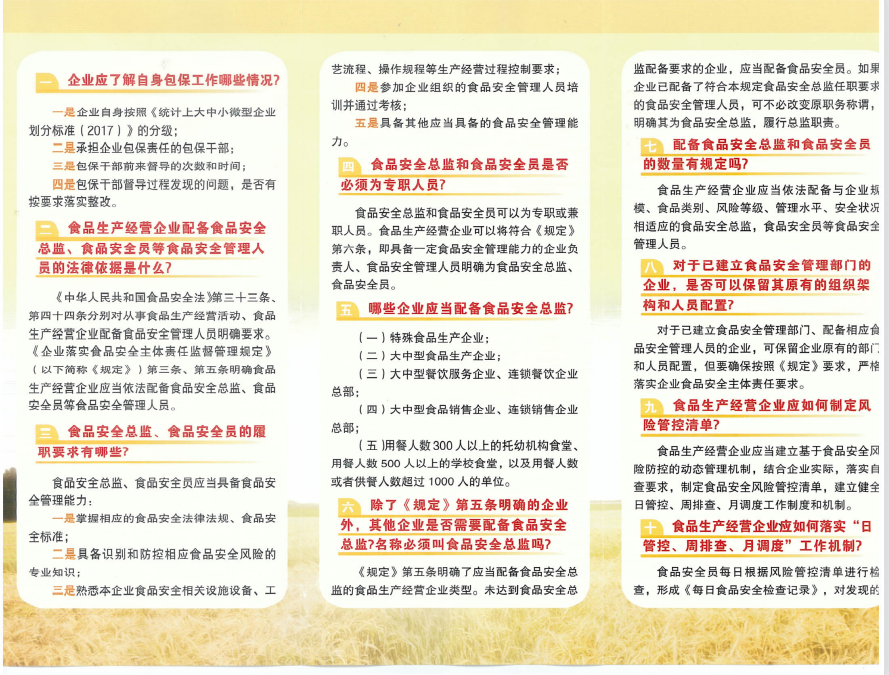 一 企业应了解自身包保工作哪些情况?
一是企业自身按照《统计上大中小微型企业
划分标准（2017）》的分级；
二是承担企业包保责任的包保干部；
三是包保干部前来督导的次数和时间；
四是包保干部督导过程发现的问题，是否有
按要求落实整改。
二 食品生产经营企业配备食品安全
总监、食品安全员等食品安全管理人
员的法律依据是什么?
《中华人民共和国食品安全法》第三十三条、
第四十四条分别对从事食品生产经营活动、食品
生产经营企业配备食品安全管理人员明确要求。
《企业落实食品安全主体责任监督管理规定》
（以下简称《规定》）第三条、第五条明确食品
生产经营企业应当依法配备食品安全总监、食品
安全员等食品安全管理人员。
三 食品安全总监、食品安全员的履
职要求有哪些?
食品安全总监、食品安全员应当具备食品安
全管理能力：
一是掌握相应的食品安全法律法规、食品安
全标准；
二是具备识别和防控相应食品安全风险的
专业知识；
三是熟悉本企业食品安全相关设施设备、工
艺流程、操作规程等生产经营过程控制要求；
四是参加企业组织的食品安全管理人员培
训并通过考核；
五是具备其他应当具备的食品安全管理能
力。
四 食品安全总监和食品安全员是否
必须为专职人员?
食品安全总监和食品安全员可以为专职或兼
职人员。食品生产经营企业可以将符合《规定》
第六条，即具备一定食品安全管理能力的企业负
责人、食品安全管理人员明确为食品安全总监、
食品安全员。
五 哪些企业应当配备食品安全总监?
（一）特殊食品生产企业；
（二）大中型食品生产企业；
（三）大中型餐饮服务企业、连锁餐饮企业
总部；
（四）大中型食品销售企业、连锁销售企业
总部；
（五）用餐人数300人以上的托幼机构食堂、
用餐人数500人以上的学校食堂，以及用餐人数
或者供餐人数超过1000人的单位。
六 除了《规定》第五条明确的企业
外，其他企业是否需要配备食品安全
总监?名称必须叫食品安全总监吗?
《规定》第五条明确了应当配备食品安全总
监的食品生产经营企业类型。未达到食品安全总
监配备要求的企业，应当配备食品安全员。如果
企业已配备了符合本规定食品安全总监任职要求
的食品安全管理人员，可不必改变原职务称谓，
明确其为食品安全总监，履行总监职责。
七 配备食品安全总监和食品安全员
的数量有规定吗?
食品生产经营企业应当依法配备与企业规
模、食品类别、风险等级、管理水平、安全状况
相适应的食品安全总监，食品安全员等食品安全
管理人员。
八 对于已建立食品安全管理部门的
企业，是否可以保留其原有的组织架
构和人员配置?
对于已建立食品安全管理部门、配备相应食
品安全管理人员的企业，可保留企业原有的部门
和人员配置，但要确保按照《规定》要求，严格
落实企业食品安全主体责任要求。
九 食品生产经营企业应如何制定风
险管控清单?
食品生产经营企业应当建立基于食品安全风
险防控的动态管理机制，结合企业实际，落实自
查要求，制定食品安全风险管控清单，建立健全
日管控、周排查、月调度工作制度和机制。
十 食品生产经营企业应如何落实“日
管控、周排查、月调度”工作机制?
食品安全员每日根据风险管控清单进行检
查，形成《每日食品安全检查记录》，对发现的